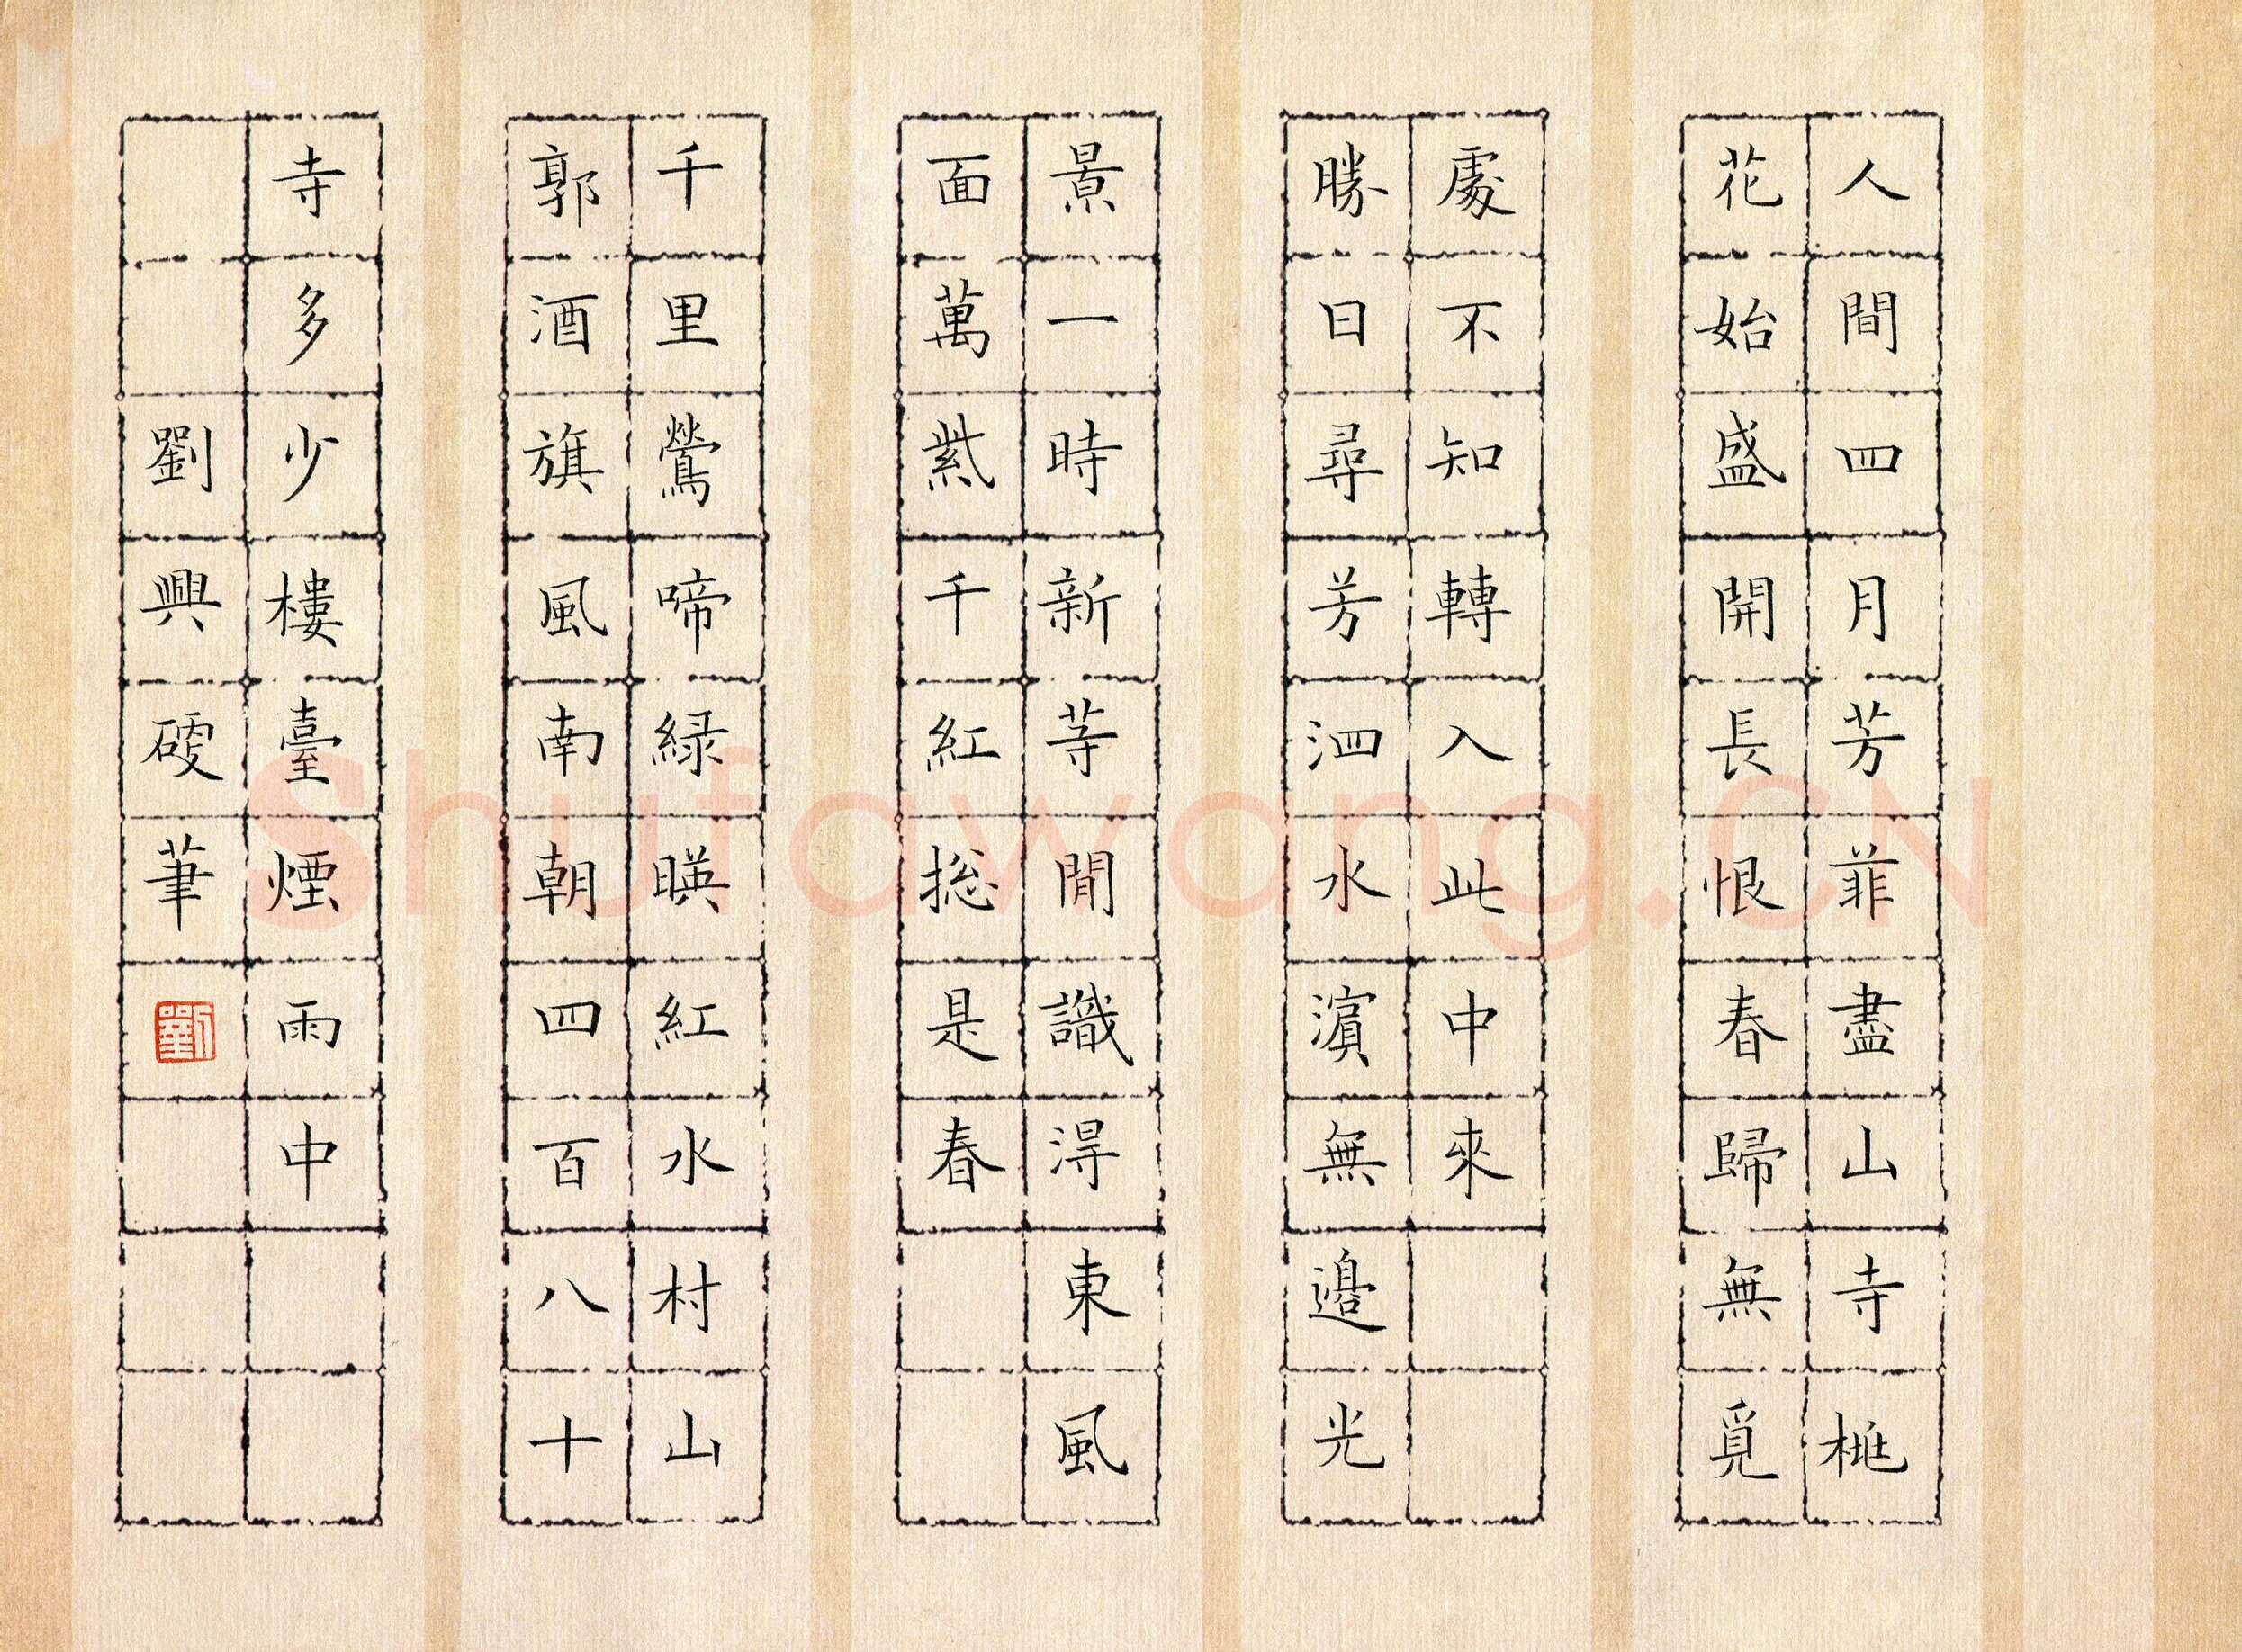 人間四月芳菲盡山寺桃
花始盛開長恨春歸無覓
處不知轉入此中來
勝日尋芳泗水濱無邊光
景一時新等閒識得東風
面萬紫千紅總是春
千里鶯啼緑暎紅水村山
郭酒旗風南朝四百八十
寺多少樓臺煙雨中
劉興硬筆
劉
Shufawang.CN